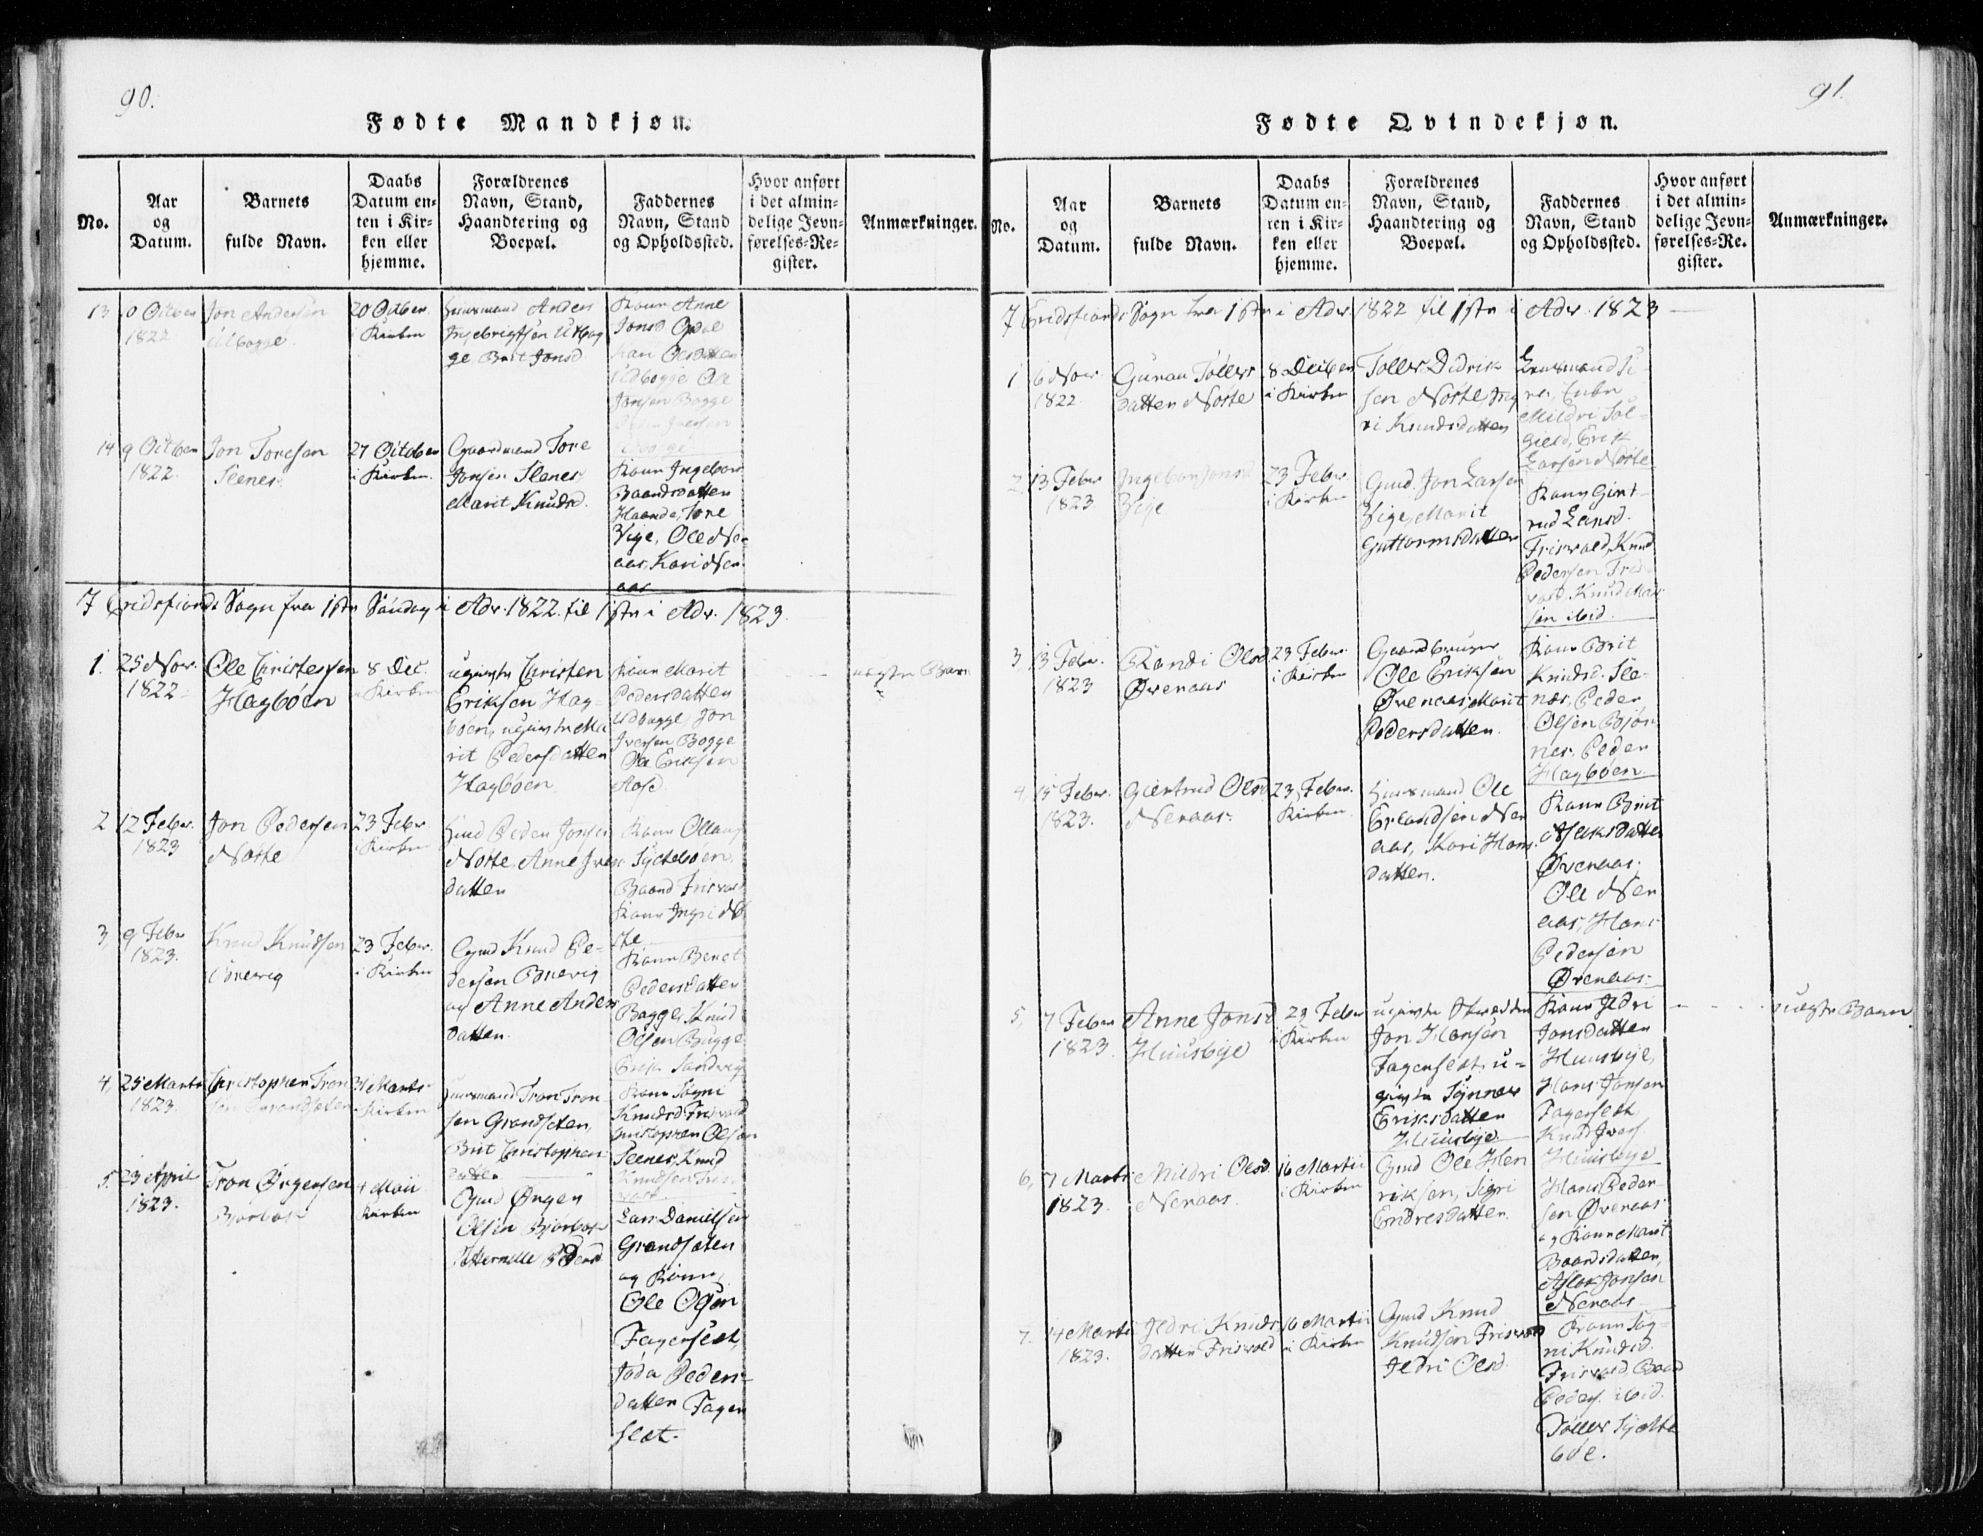 90.
Fødte Mandkjøn.
No.
Aar
og
Datum.
Barnets
fulde Navn.
Daabs
Datum en-
ten i Kir-
ken eller
hjemme.
Forældrenes
Navn, Stand,
Haandtering og
Boepæl.
Faddernes
Navn, Stand
og Opholdssted.
Hvor anført
i det almin-
delige Jevn-
førelses-Re-
gister.
Anmærkninger.
13
Octber
1822
Jon Andersen
Utbogge
20 Octber
i Kirken
Huusmand Anders
Ingebrigtsen Utbog
ge Brit Jonsd
Kone Anne
Jonsd
Kari Olsdatter
Udbogge Ole
Jonsen Bogge
14
9 Octber
1822
Jon Toresen
Slenes
27 October
i Kirken
Gaardmand Tore
Jonsen Slenes
Marit Knudsd.
Kone Ingebor
Baardsdatter
Tore
Vige, Ole Ne-
aas, Kari Ner
aas
7 Eridsfiords Sogn fra 1ste Søndag i Adv. 1822 til 1ste i Adv. 1823.
1.
25 Nov.
1822
Ole Christensen
Hagbøen
8 Dec.
i Kirken
ugivte Christen
Eriksen Hag-
bøen, ugivte Ma
rit Pedersdatter
Hagbøen
Kone Marit
Pedersdatter
Udbogge, Jon
Iversen Bogge
Ole Eriksen
uægte Barn
2
12 Febr.
1823
Jon Pedersen
Nøste
23 Febr.
i Kirken
Peder Jonsen
Nøste, Anne Ivers
datter
Kone
Baard Frisvold
Kone Ingri Nø
ste
3,
9 Febr
1823.
Knud Knudsen
23 Febr.
i Kirken
Gmd Knud Pe-
dersen
og Anne Anders
datter.
Kone Beret
Pedersdatter
Bogge, Knud
Olsen Bugge
Erik Sandvig
4,
25 Marts
1823.
Christopher Tron
sen Grandsæten
31 Marts
i Kirken
Huusmand Tron Tron
sen Grandsæten,
Brit Christophers
datter
Kone Signi
Knudsd Frisvold
Christopher Olsen
Slenes, Knud
Knudsen Fris-
vold
5.
23 April
1823.
Tron Ørgensen
Bjørbak
4 Maii
Kirken
Gmd Ørgen
Olsen Bjørbak
Pedersd
Lars Danielsen
Grandsæten
og Kone,
Ole Olsen
Fagerslet,
Peders-
datter Fager
slet.
91.
Fødte Qvindekjøn.
No.
Aar
og
Datum.
Barnets
fulde Navn.
Daabs
Datum en-
ten i Kir-
ken eller
hjemme.
Forældrenes
Navn, Stand,
Haandtering og
Boepæl.
Faddernes
Navn, Stand
og Opholdssted.
Hvor anført
i det almin-
delige Jevn-
førelses-Re-
gister.
Anmærkninger.
7 Eridsfiords Sogn fra 1ste i Adv. 1822 til 1ste i Adv. 1823
1
6 Nov.
1822
Guran Tollevs
datter Nøste
8 Decber
i Kirken
Tollev Didrik
sen Nøste, Ing
ri Knudsdatter
Mildri Sol-
Erik
Larsen Nøste
2
13 Febr
1823
Ingebor Jonsd
Vige
23 Febr.
i Kirken
Gmd. Jon Larsen
Vige, Marit
Guttormsdatter
Kone Giert-
rud Larsd.
Frisvold, Knud
Pedersen Fris-
vold, Knud
sen ibid.
3,
13 Febr.
1823
Randi Olsd
Øveraas
23 Febr.
i Kirken
Gaardbruger
Ole Eriksen
Øveraas, Marit
Pedersdatter.
Kone Brit
Knudsd. Sle-
nes, Peder
Olsen Bjør
nes, Peder
Hagbøen.
4
15 Febr.
1823.
Giertrud Olsd
Neraas.
23 Febr.
Kirken.
Huusmand Ole
Erlandsen Ner
aas, Kari Hans
datter.
Kone Brit
Aslaksdatter
Øveraas,
Ole Ner
aas, Hans
Pedersen
Øveraas.
5,
7 Febr
1823.
Anne Jonsd
Huusbye
23 Febr
i Kirken
ugivte Skrædder
Jon Hansen
Fagerslet, u-
givte Synnøv
Eriksdatter
Huusbye.
Kone Jldri
Jonsdatter
Huusbye,
Hans Jonsen
Fagerslet
Knud Ivers.
Huusbye
uægte Barn
6,
7 Marts
1823.
Mildri Olsd.
Neraas.
16 Martii
i Kirken
Gmd Ole Hen
riksen, Sigri
Endresdatter.
Hans Peder
sen Øveraas
og Kone Marit
Baardsdatter,
Aslak Jonsen
Neraas
7.
14 Marts
1823.
Jldri Knuds
datter Frisvold
16 Martii
i Kirken
Gmd Knud
Knudsen Frisvold
Jldri Olsd.
Kone Sig-
ni Knudsd.
Frisvold, Baad
Peders. ibid.
Tollev Sjølte
bøe.